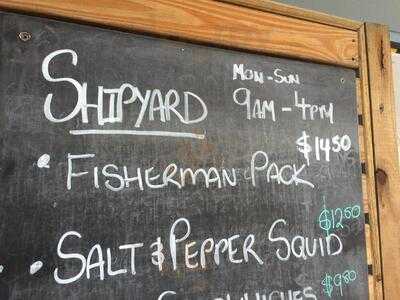 SHIPYARD
MON-SUN
9AM-4PM
$14.50
• FISHERMAN PACK
$12.50
• SALT & PEPPER SQUID
$9.80